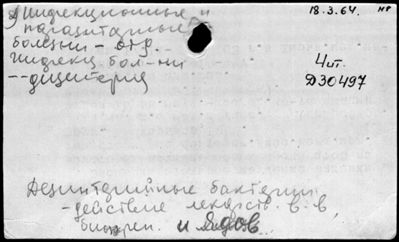 Инфекционные и
паразитарные
болезни - отр.
инфекц. бол-ни
-- дизентерия
18.3.64. нР
4ит.
Д30497
Дезинтерийные бактерии
- действие лекарств. в-в,
и ядов